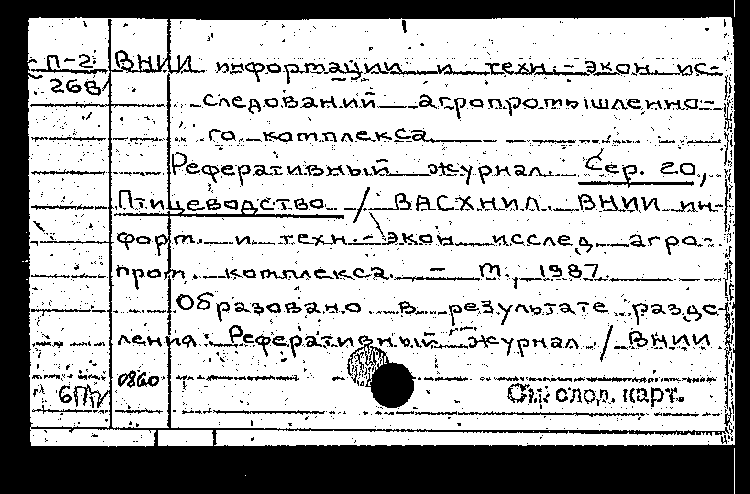 П-2 ВНИИ информации и техн.-экон. ис-
268 следований агропромышленно-
го комплекса
Реферативный журнал. Сер. 20,
Птицеводство / ВАСХНИЛ. ВНИИ ин-
форм. и техн.-экон. исслед. агро-
пром. комплекса. - М., 1987.
Образовано в результате разде-
ления: Реферативный журнал / ВНИИ
0860
См. след. карт.